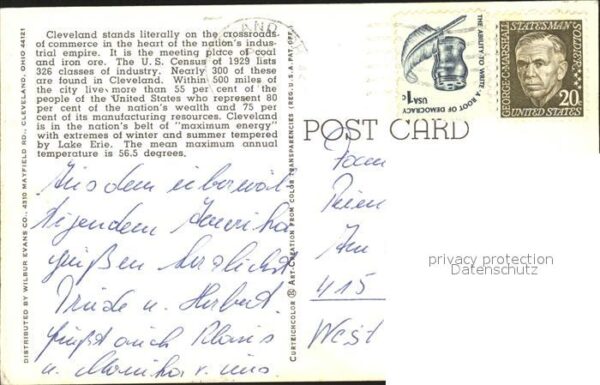 Cleveland stands literally on the crossroads
of commerce in the heart of the nation's indus-
trial empire. It is the meeting place of coal
and iron ore. The U.S. Census of 1929 lists
326 classes of industry. Nearly 300 of these
are found in Cleveland. Within 500 miles of
the city live more than 55 per cent of the
people of the United States who represent 80
per cent of the nation's wealth and 75 per
cent of its manufacturing resources. Cleveland
is in the nation's belt of "maximum energy"
with extremes of winter and summer tempered
by Lake Erie. The mean maximum annual
temperature is 56.5 degrees.
Aus dem überwäl-
tigendem Amerika
grüßen herzlichst
Trude u. Herbert.
Grüßt auch Klaus
u. Monika v. uns.
DISTRIBUTED BY WILBUR EVANS CO., 4310 MAYFIELD RD., CLEVELAND, OHIO 44121
CURTEICHCOLOR ART-CREATION FROM COLOR TRANSPARENCIES (REG. U.S.A. PAT. OFF.)
POST CARD
THE ABILITY TO WRITE · A ROOT OF DEMOCRACY
USA 1c
GEORGE C. MARSHALL
STATESMAN SOLDIER
20c
UNITED STATES
Fam
415
West
privacy protection
Datenschutz